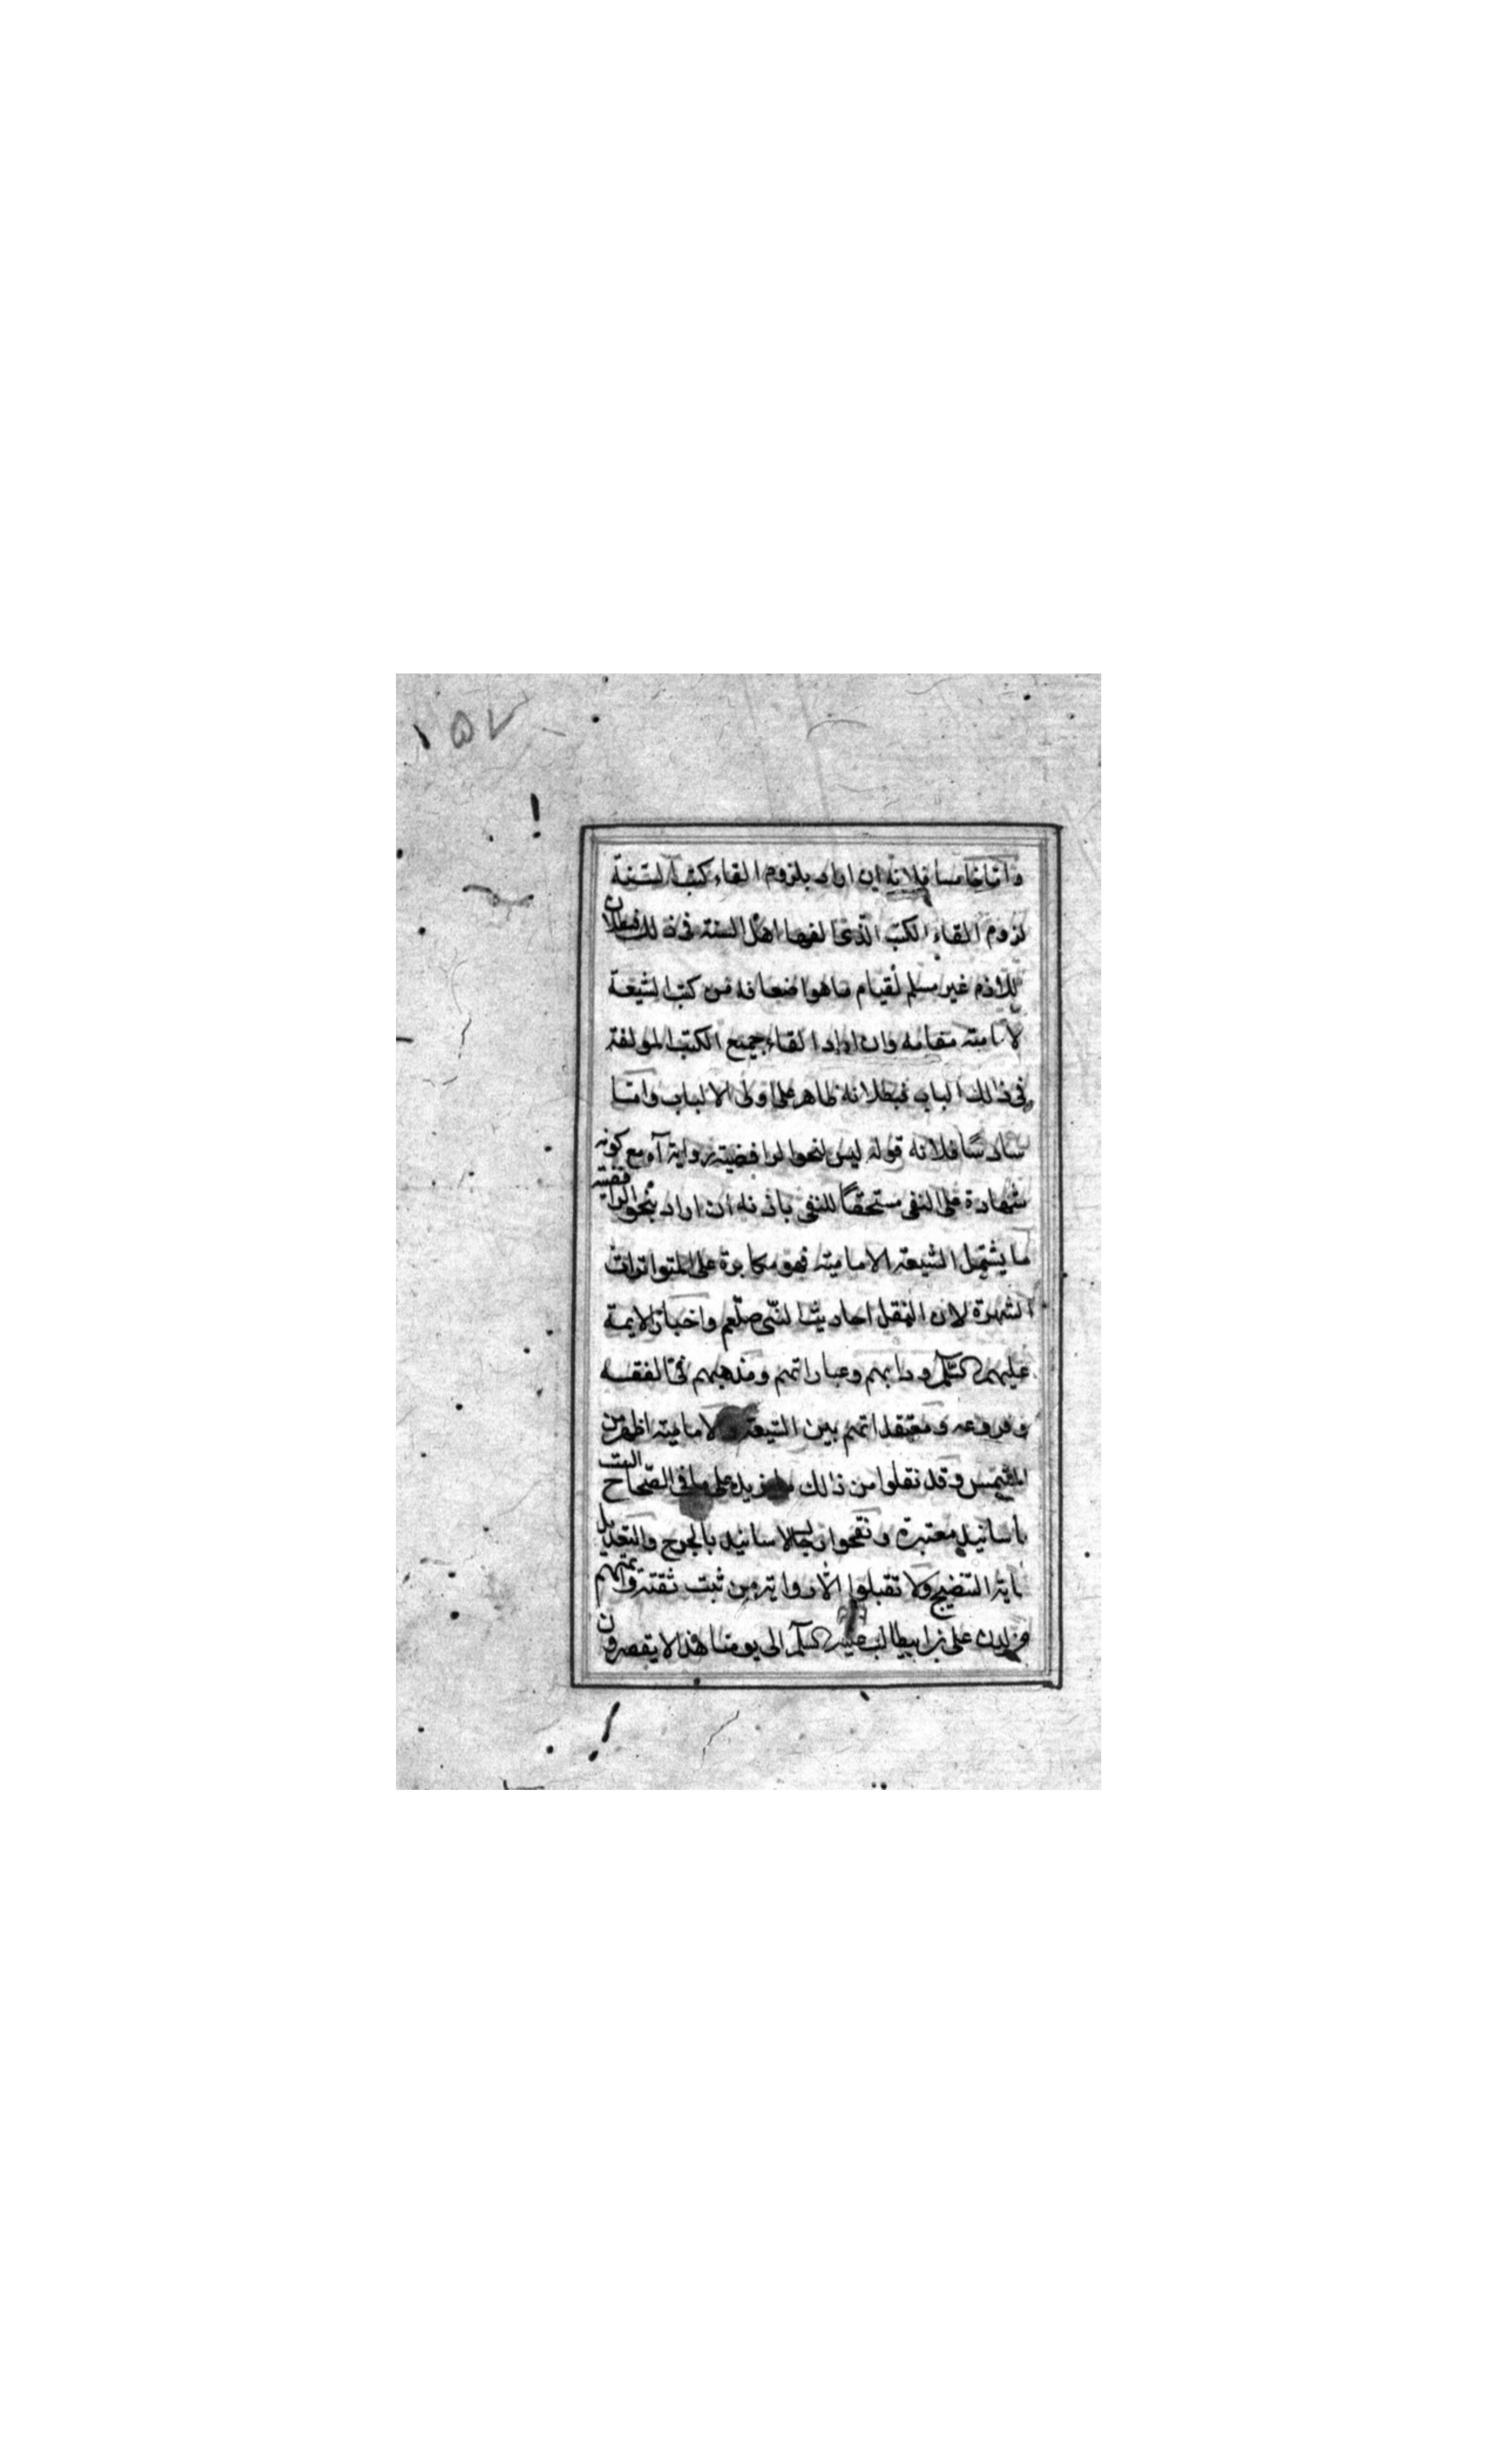 ١٥٧
واما خامسا فلانه ان اراد بلزوم القاء كتب السنة
لزوم القاء الكتب الذى الفها اهل السنة فى ذلك فبطلان
اللازم غير مسلم لقيام ما هو اضعافه من كتب الشيعة
الامامية مقامه وان اراد القاء جميع الكتب المولفة
فى ذلك الباب فبطلانه ظاهر على اولى الالباب واما
سادسًا فلانه قوله ليس لنحو الرافضية رواية آه مع كونه
شهادة على النفى مستحقًا للنفى بانه ان اراد بنحو الرافضية
ما يشتمل الشيعة الامامية فهو مكابرة على المتواترات
الشهرة لان النقل احاديث النبى صلعم واخبار الايمة
عليهم السلم ودابهم وعباراتهم ومذهبهم فى الفقه
وفروعه ومعتقداتهم بين الشيعة الامامية اظهر من
الشمس وقد نقلوا من ذلك ما يزيد على ما فى الصّحاح الست
باسانيد معتبرة ونقحوا رجال الاسانيد بالجرح والتعديل
التنقيح ولا تقبلوا الا رواية من ثبت ثقته
على بن ابيطالب عليه السلم الى يومنا هذا لا يقصرون